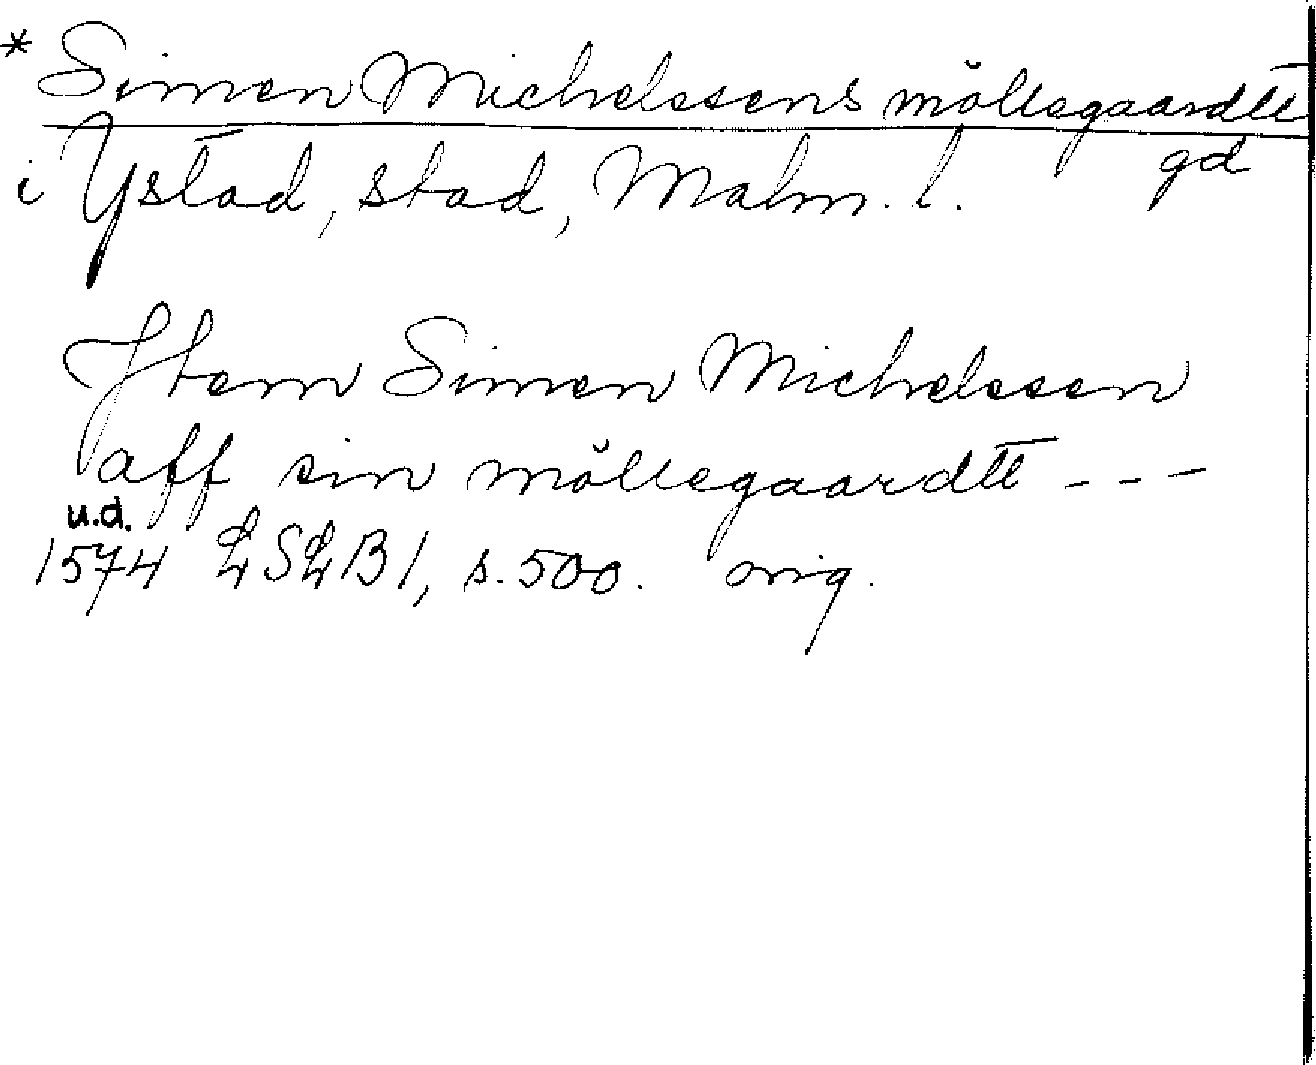 * Simen Michelssens möllegaardtt
gd
i Ystad, stad, Malm. l.
Jtem Simen Michelssen
aff sin möllegaardtt ---
u.d.
1574 LSLB 1, s. 500. orig.